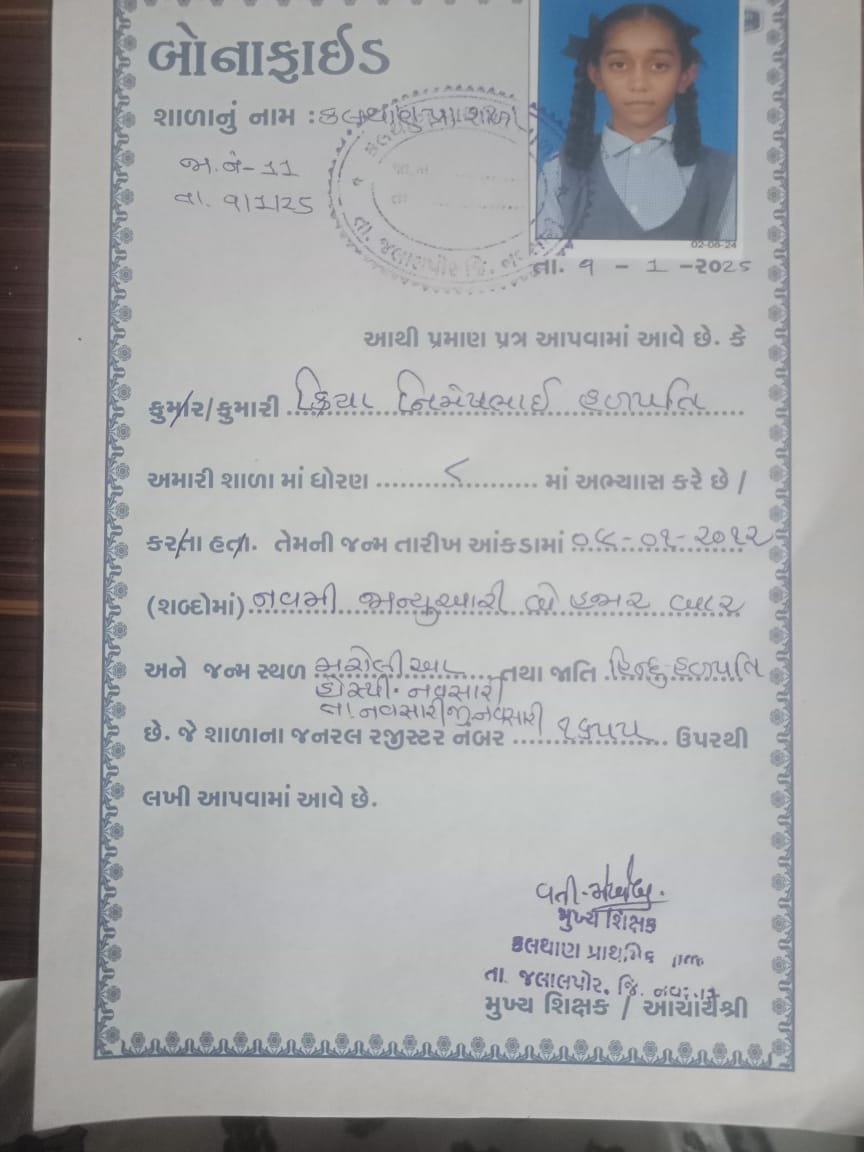 બોનાફાઈડ
શાળાનું નામ : કલથાણ પ્રા. શાળા
જા.નં-11
તા. ૧/1/25
તા. જલાલપોર જિ.
02-08-24
તા. ૧ - 1 -૨૦૨5
આથી પ્રમાણ પત્ર આપવામાં આવે છે. કે
કુમાર/કુમારી ક્રિયા નિમેષભાઈ હળપતિ
અમારી શાળા માં ધોરણ ૮ માં અભ્યાસ કરે છે /
કરતા હતા. તેમની જન્મ તારીખ આંકડામાં ૦૯-૦૧-૨૦૧૨
(શબ્દોમાં) નવમી જાન્યુઆરી બે હજાર બાર
અને જન્મ સ્થળ મરોલી તથા જાતિ હિન્દુ-હળપતિ
હોસ્પી. નવસારી
તા.નવસારી જી.નવસારી
છે. જે શાળાના જનરલ રજીસ્ટર નંબર ૧૬૫૫ ઉપરથી
લખી આપવામાં આવે છે.
વતી-
મુખ્ય શિક્ષક
કલથાણ પ્રાથમિક
તા. જલાલપોર, જિ.
મુખ્ય શિક્ષક / આચાર્યશ્રી